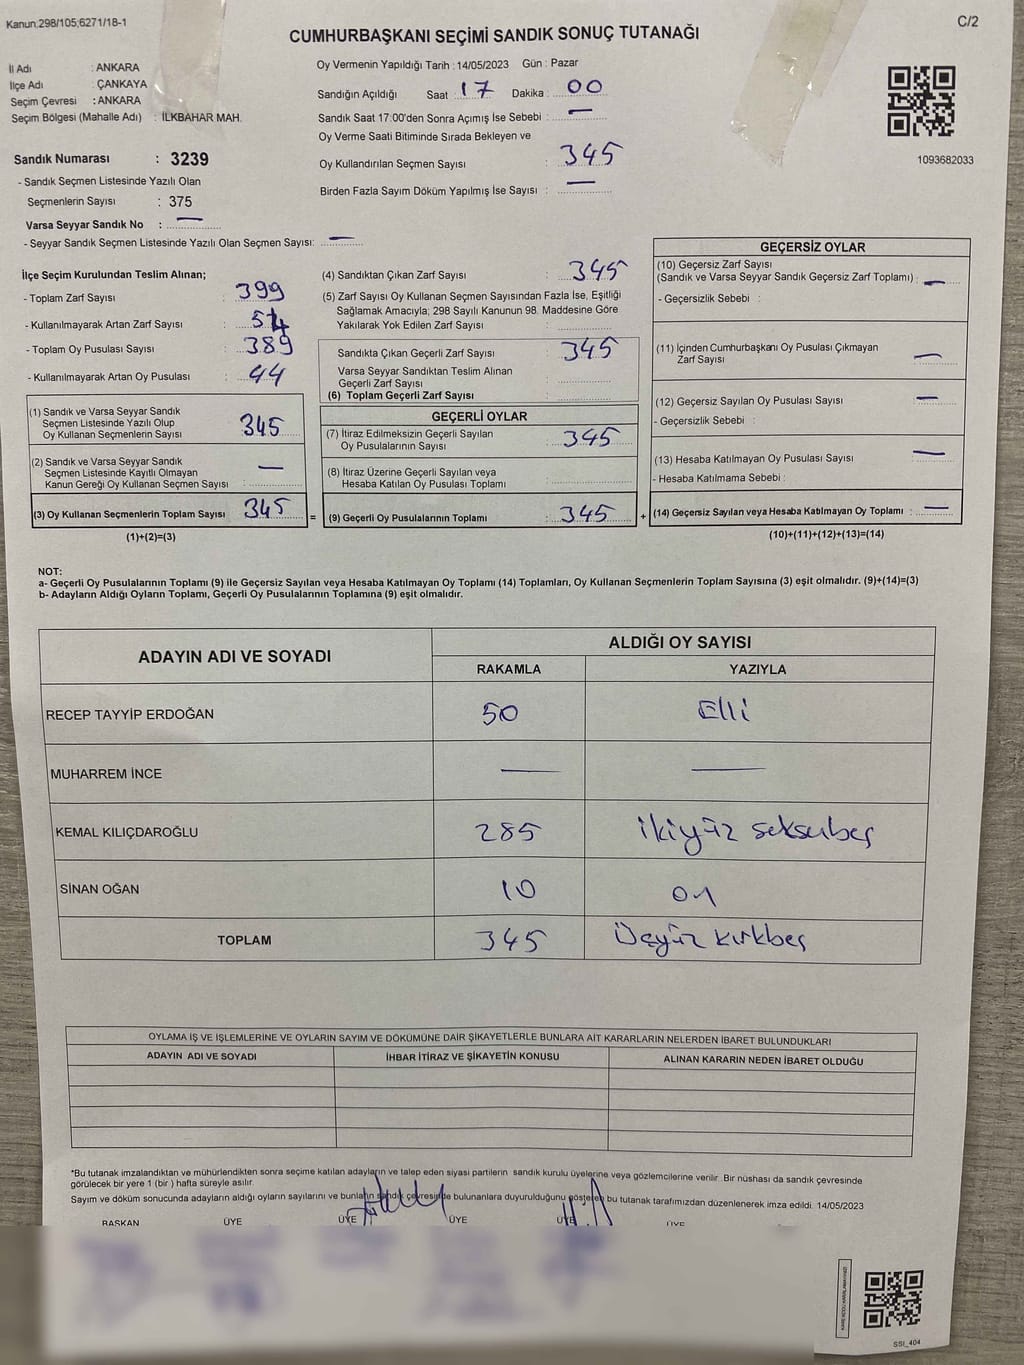 Kanun:298/105;6271/18-1
C/2
CUMHURBAŞKANI SEÇİMİ SANDIK SONUÇ TUTANAĞI
İl Adı : ANKARA
İlçe Adı : ÇANKAYA
Seçim Çevresi : ANKARA
Seçim Bölgesi (Mahalle Adı) : İLKBAHAR MAH.
Sandık Numarası : 3239
- Sandık Seçmen Listesinde Yazılı Olan
Seçmenlerin Sayısı : 375
Varsa Seyyar Sandık No : —
- Seyyar Sandık Seçmen Listesinde Yazılı Olan Seçmen Sayısı: —
Oy Vermenin Yapıldığı Tarih : 14/05/2023 Gün : Pazar
Sandığın Açıldığı Saat : 17 Dakika : 00
Sandık Saat 17:00'den Sonra Açımış İse Sebebi : —
Oy Verme Saati Bitiminde Sırada Bekleyen ve
Oy Kullandırılan Seçmen Sayısı : 345
Birden Fazla Sayım Döküm Yapılmış İse Sayısı : —
1093682033
İlçe Seçim Kurulundan Teslim Alınan;
- Toplam Zarf Sayısı : 399
- Kullanılmayarak Artan Zarf Sayısı : 54
- Toplam Oy Pusulası Sayısı : 389
- Kullanılmayarak Artan Oy Pusulası : 44
(1) Sandık ve Varsa Seyyar Sandık
Seçmen Listesinde Yazılı Olup
Oy Kullanan Seçmenlerin Sayısı 345
(2) Sandık ve Varsa Seyyar Sandık
Seçmen Listesinde Kayıtlı Olmayan
Kanun Gereği Oy Kullanan Seçmen Sayısı : —
(3) Oy Kullanan Seçmenlerin Toplam Sayısı 345
(1)+(2)=(3)
(4) Sandıktan Çıkan Zarf Sayısı : 345
(5) Zarf Sayısı Oy Kullanan Seçmen Sayısından Fazla İse, Eşitliği
Sağlamak Amacıyla; 298 Sayılı Kanunun 98. Maddesine Göre
Yakılarak Yok Edilen Zarf Sayısı :
Sandıkta Çıkan Geçerli Zarf Sayısı : 345
Varsa Seyyar Sandıktan Teslim Alınan
Geçerli Zarf Sayısı :
(6) Toplam Geçerli Zarf Sayısı :
GEÇERLİ OYLAR
(7) İtiraz Edilmeksizin Geçerli Sayılan
Oy Pusulalarının Sayısı : 345
(8) İtiraz Üzerine Geçerli Sayılan veya
Hesaba Katılan Oy Pusulası Toplamı :
= (9) Geçerli Oy Pusulalarının Toplamı : 345
GEÇERSİZ OYLAR
(10) Geçersiz Zarf Sayısı
(Sandık ve Varsa Seyyar Sandık Geçersiz Zarf Toplamı) : —
- Geçersizlik Sebebi :
(11) İçinden Cumhurbaşkanı Oy Pusulası Çıkmayan
Zarf Sayısı —
(12) Geçersiz Sayılan Oy Pusulası Sayısı —
- Geçersizlik Sebebi :
(13) Hesaba Katılmayan Oy Pusulası Sayısı —
- Hesaba Katılmama Sebebi :
+ (14) Geçersiz Sayılan veya Hesaba Katılmayan Oy Toplamı : —
(10)+(11)+(12)+(13)=(14)
NOT:
a- Geçerli Oy Pusulalarının Toplamı (9) ile Geçersiz Sayılan veya Hesaba Katılmayan Oy Toplamı (14) Toplamları, Oy Kullanan Seçmenlerin Toplam Sayısına (3) eşit olmalıdır. (9)+(14)=(3)
b- Adayların Aldığı Oyların Toplamı, Geçerli Oy Pusulalarının Toplamına (9) eşit olmalıdır.
ADAYIN ADI VE SOYADI
ALDIĞI OY SAYISI
RAKAMLA YAZIYLA
RECEP TAYYİP ERDOĞAN 50 Elli
MUHARREM İNCE — —
KEMAL KILIÇDAROĞLU 285 ikiyüz seksenbeş
SİNAN OĞAN 10 on
TOPLAM 345 Üçyüz kırkbeş
OYLAMA İŞ VE İŞLEMLERİNE VE OYLARIN SAYIM VE DÖKÜMÜNE DAİR ŞİKAYETLERLE BUNLARA AİT KARARLARIN NELERDEN İBARET BULUNDUKLARI
ADAYIN ADI VE SOYADI İHBAR İTİRAZ VE ŞİKAYETİN KONUSU ALINAN KARARIN NEDEN İBARET OLDUĞU
*Bu tutanak imzalandıktan ve mühürlendikten sonra seçime katılan adayların ve talep eden siyasi partilerin sandık kurulu üyelerine veya gözlemcilerine verilir. Bir nüshası da sandık çevresinde
görülecek bir yere 1 (bir ) hafta süreyle asılır.
Sayım ve döküm sonucunda adayların aldığı oyların sayılarını ve bunların sandık çevresinde bulunanlara duyurulduğunu gösteren bu tutanak tarafımızdan düzenlenerek imza edildi. 14/05/2023
BAŞKAN ÜYE ÜYE ÜYE ÜYE ÜYE
SSI_404